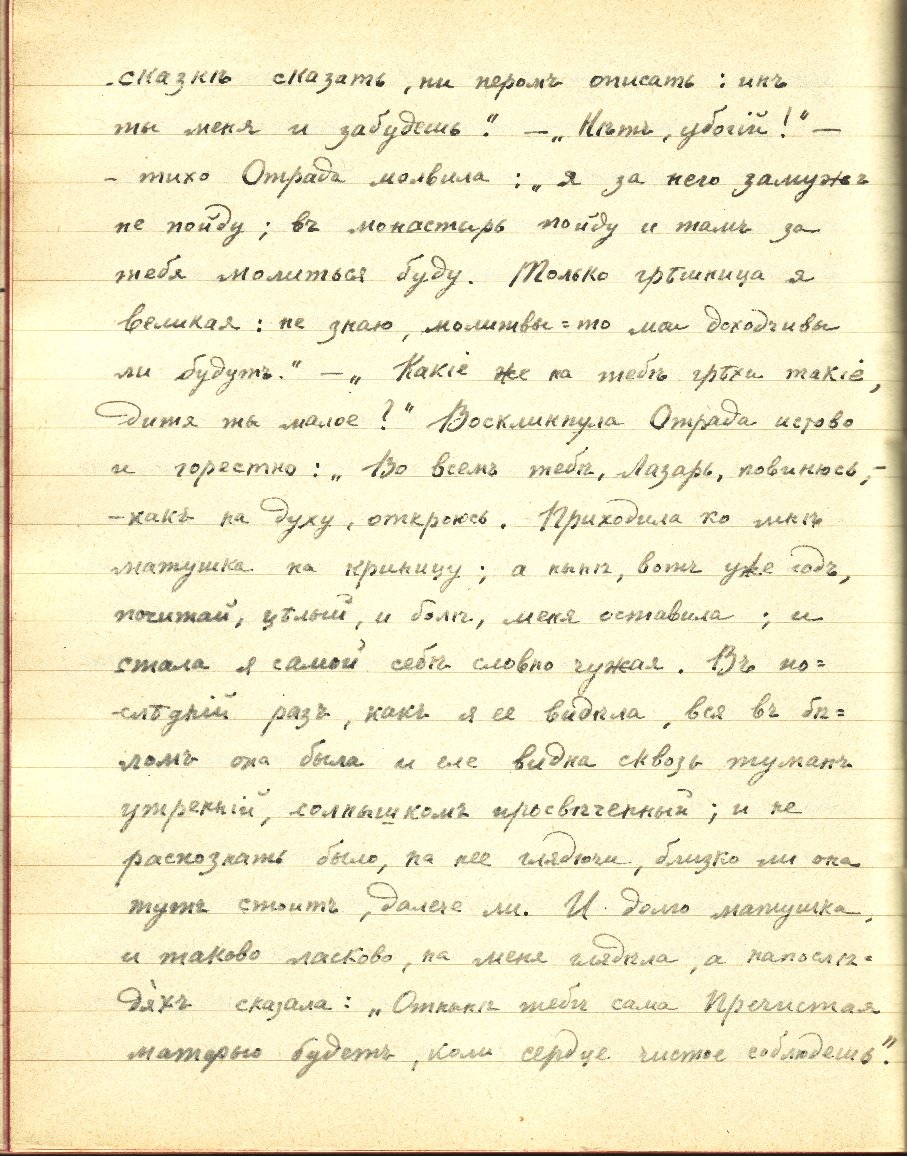 -сказкѣ сказать, ни перомъ описать : инъ
ты меня и забудешь." — „Нѣтъ, убогій!" —
- тихо Отрада молвила : „я за него замужъ
не пойду ; въ монастырь пойду и тамъ за
тебя молиться буду. Только грѣшница я
великая : не знаю, молитвы=то мои доходчивы
ли будутъ." — „Какіе же на тебѣ грѣхи такіе,
дитя ты малое ?" Воскликнула Отрада истово
и горестно : „Во всемъ тебѣ, Лазарь, повинюсь,-
-какъ на духу, откроюсь. Приходила ко мнѣ
матушка на криницу ; а нынѣ, вотъ уже годъ,
почитай, цѣлый, и болѣ, меня оставила ; и
стала я самой себѣ словно чужая. Въ по=
-слѣдній разъ, какъ я ее видѣла, вся въ бѣ=
ломъ она была и еле видна сквозь туманъ
утренній, солнышкомъ просвѣченный ; и не
распознать было, на нее глядючи, близко ли она
тутъ стоитъ, далече ли. И долго матушка,
и таково ласково, на меня глядѣла, а напослѣ=
дяхъ сказала : „Отнынѣ тебѣ сама Пречистая
матерью будетъ, коли сердце чистое соблюдешь".